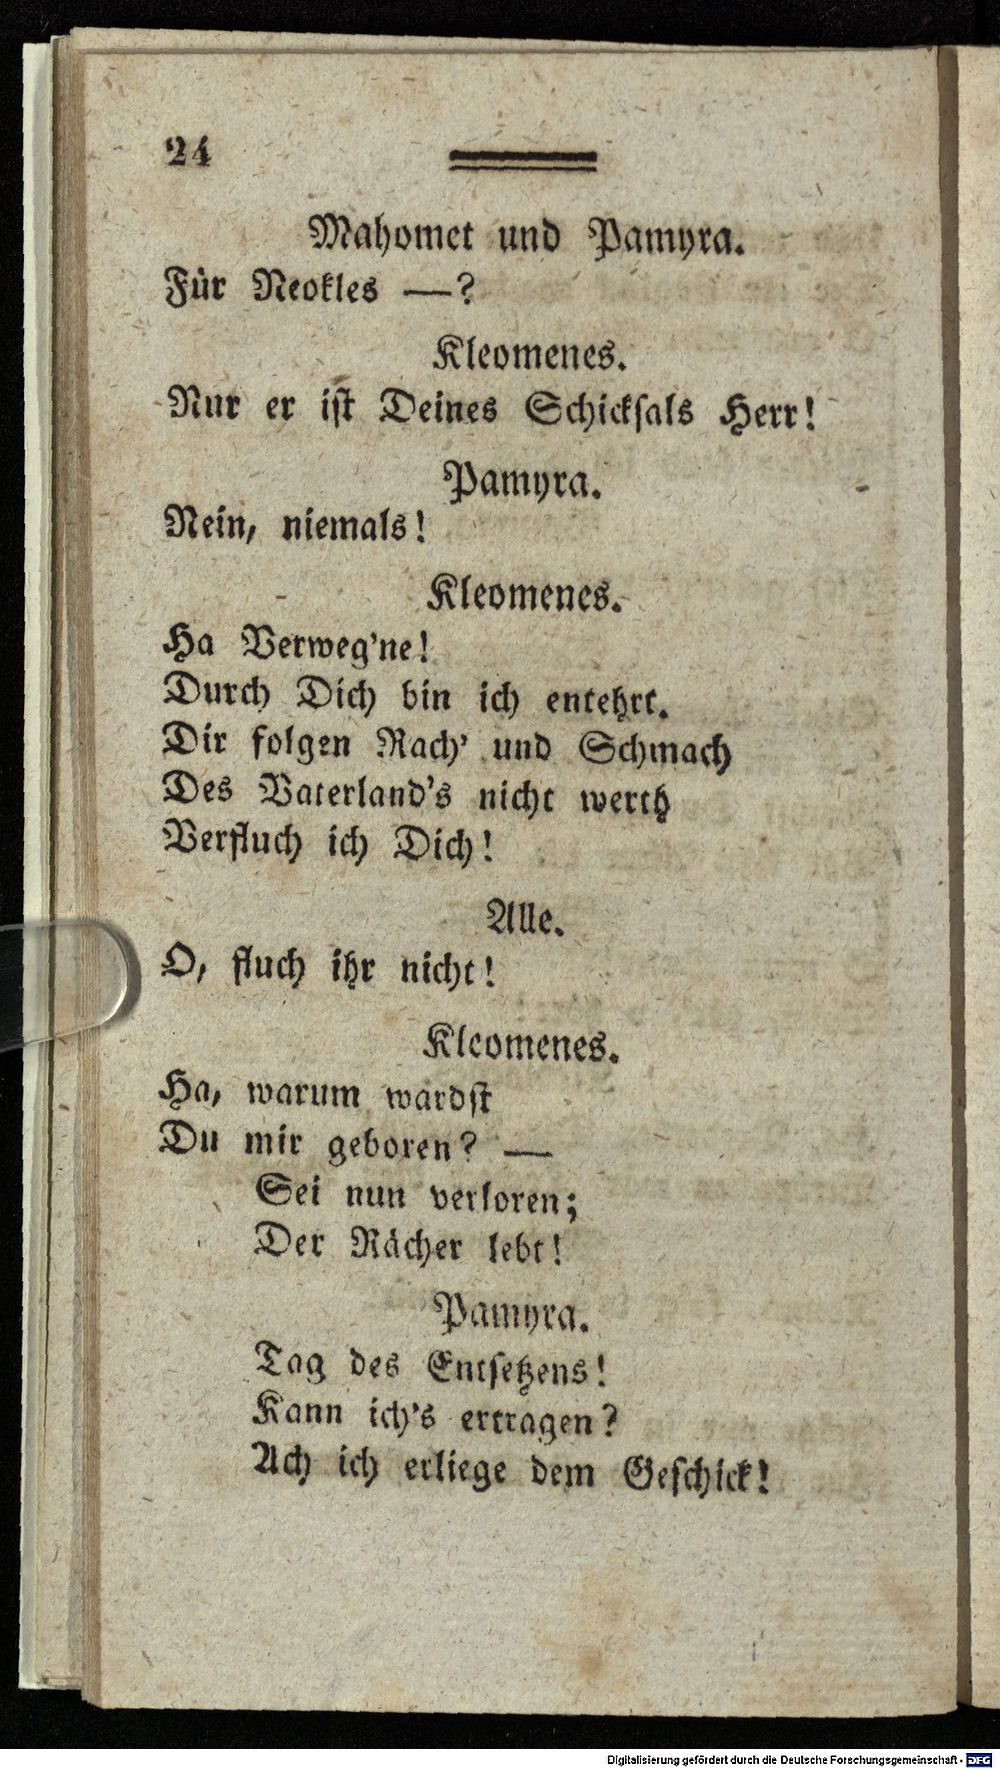 24
Mahomet und Pamyra.
Für Neokles —?
Kleomenes.
Nur er iſt Deines Schickſals Herr!
Pamyra.
Nein, niemals!
Kleomenes.
Ha Verweg'ne!
Durch Dich bin ich entehrt.
Dir folgen Rach' und Schmach
Des Vaterland's nicht werth
Verfluch ich Dich!
Alle.
O, fluch ihr nicht!
Kleomenes.
Ha, warum wardſt
Du mir geboren? —
Sei nun verloren;
Der Rächer lebt!
Pamyra.
Tag des Entſetzens!
Kann ich's ertragen?
Ach ich erliege dem Geſchick!
Digitalisierung gefördert durch die Deutsche Forschungsgemeinschaft - DFG